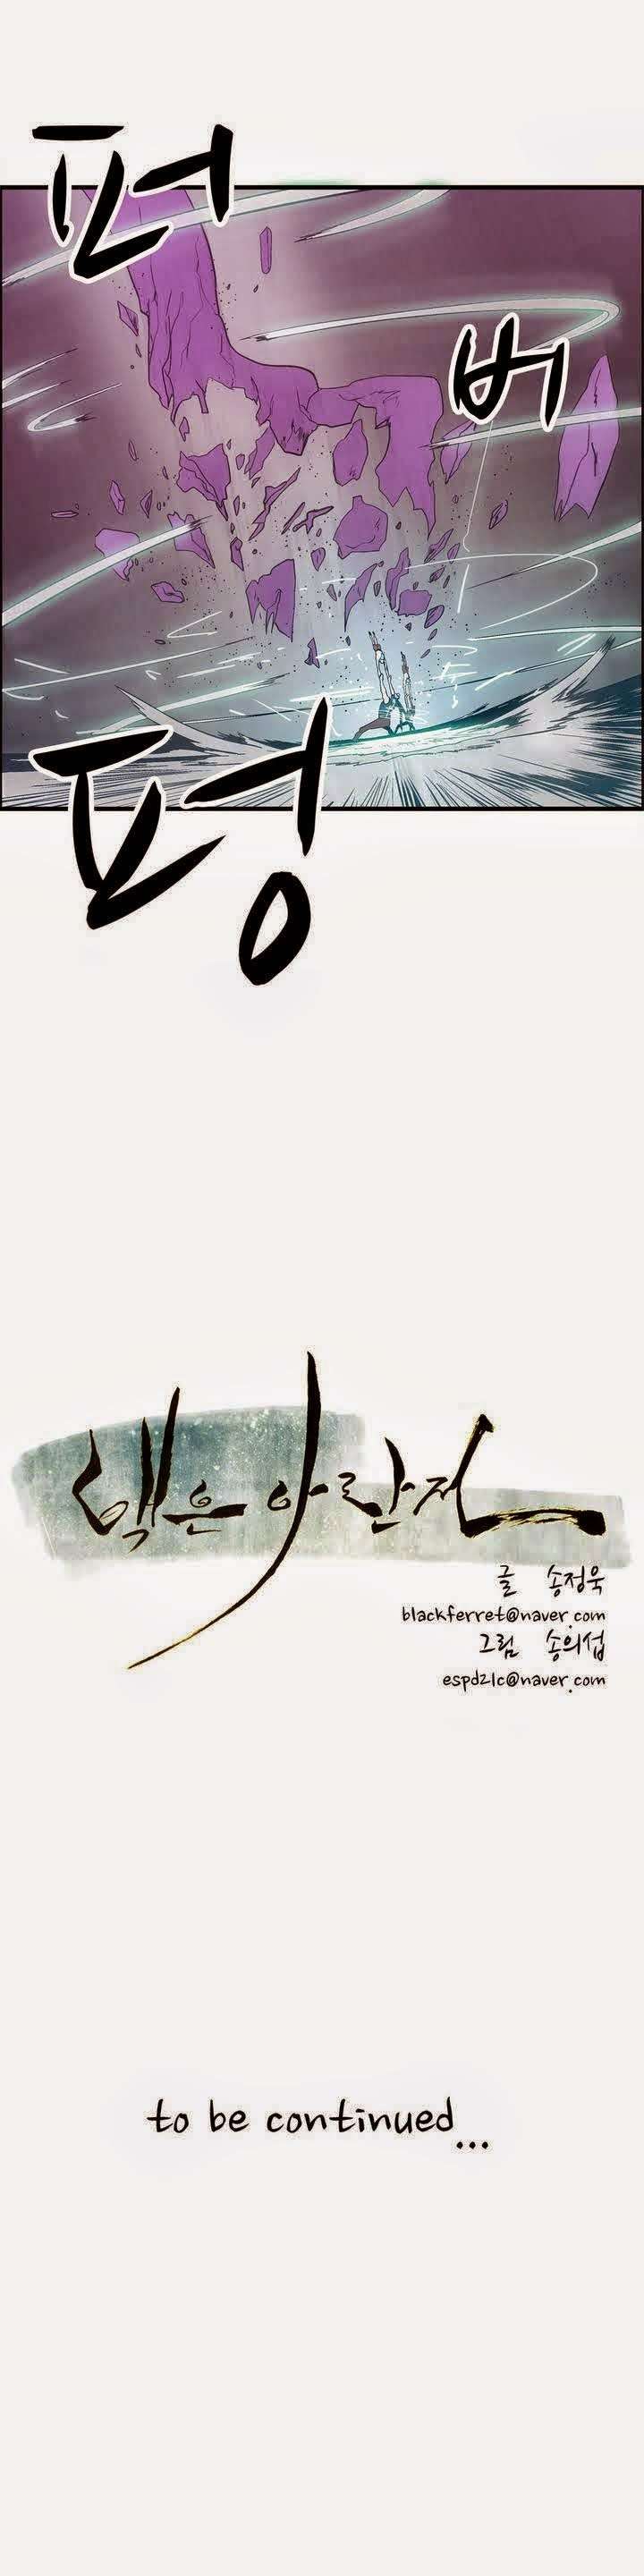 퍼
버
펑
낡은 아란전
글 송정욱
blackferret@naver.com
그림 송의섭
espd21c@naver.com
to be continued...